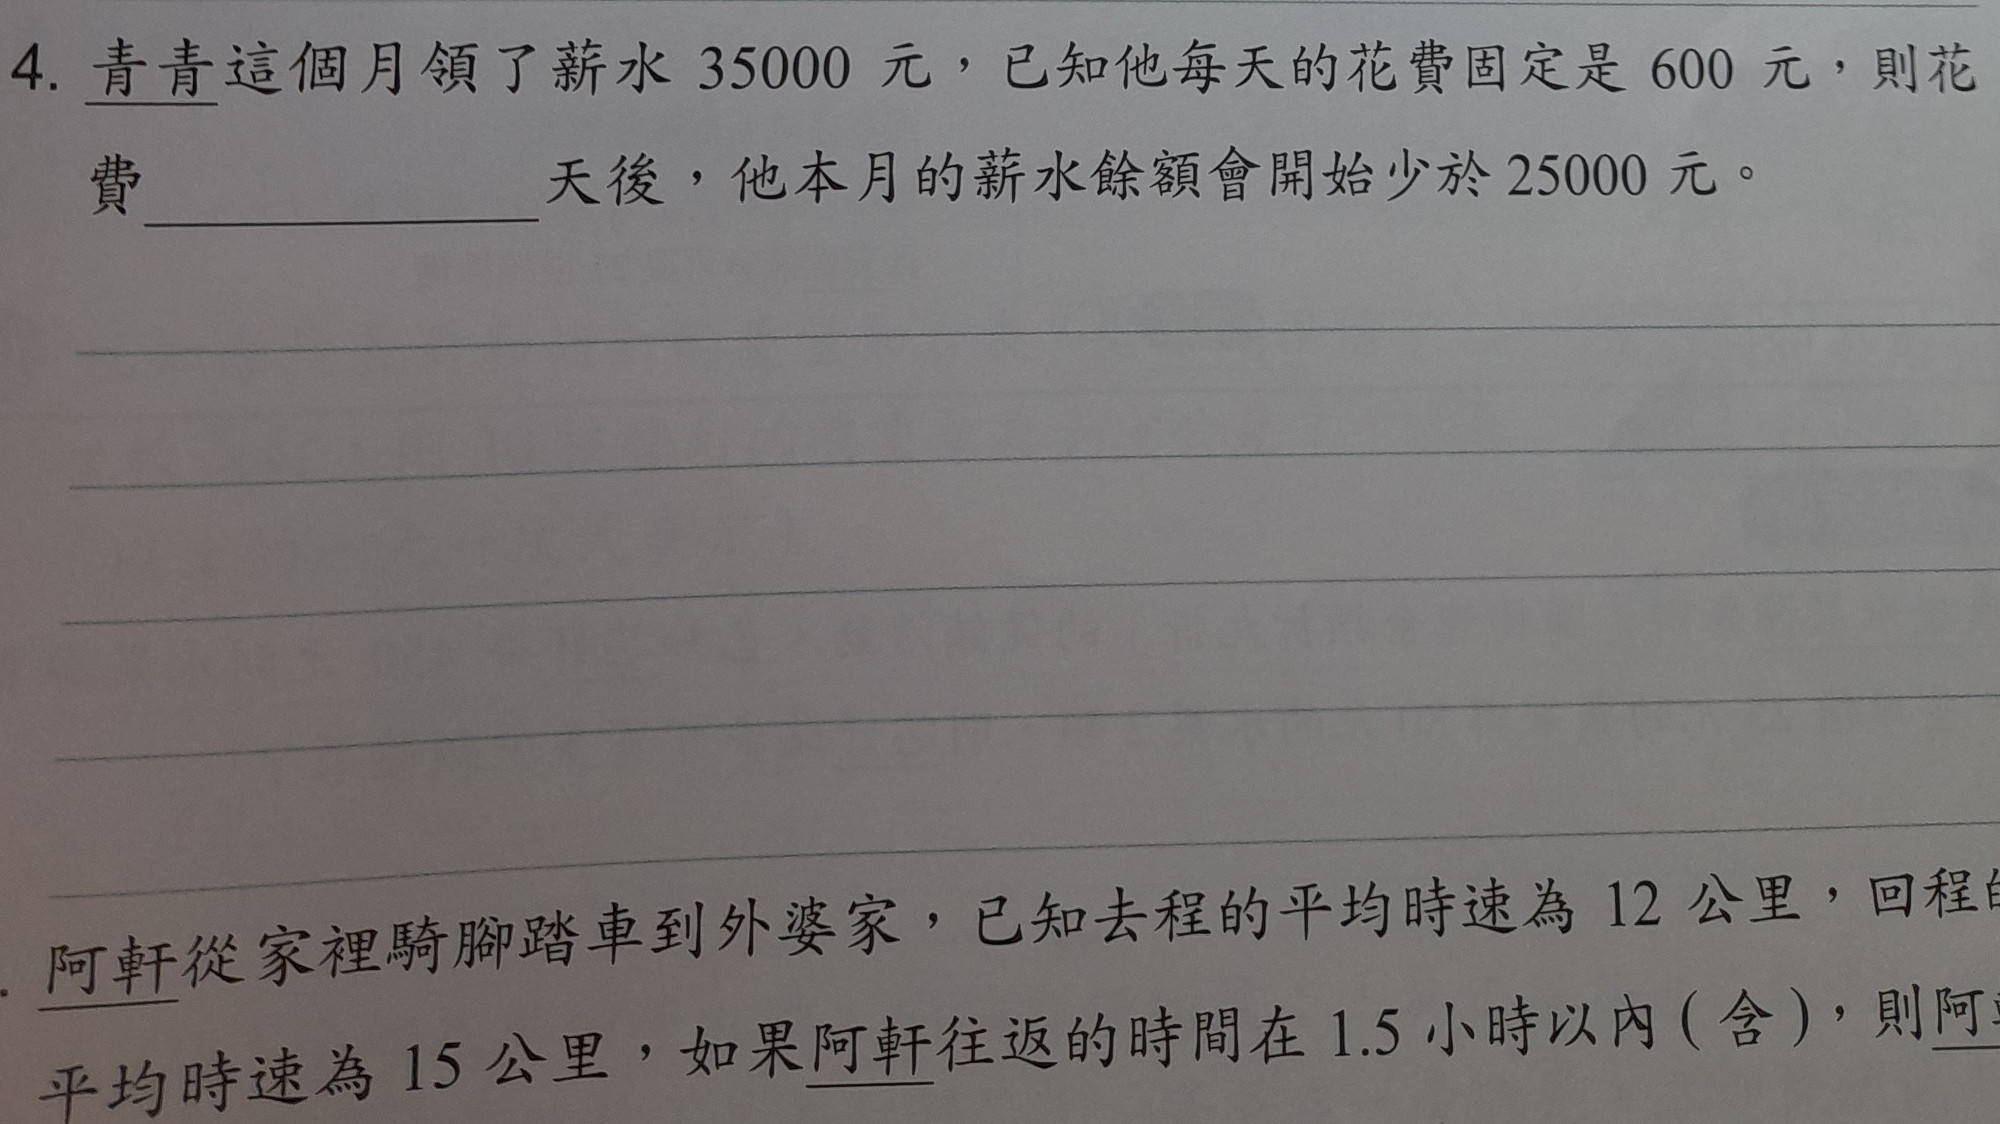 4. 青青這個月領了薪水 35000 元，已知他每天的花費固定是 600 元，則花
費＿＿＿＿＿＿天後，他本月的薪水餘額會開始少於 25000 元。
. 阿軒從家裡騎腳踏車到外婆家，已知去程的平均時速為 12 公里，回程的
平均時速為 15 公里，如果阿軒往返的時間在 1.5 小時以內(含)，則阿